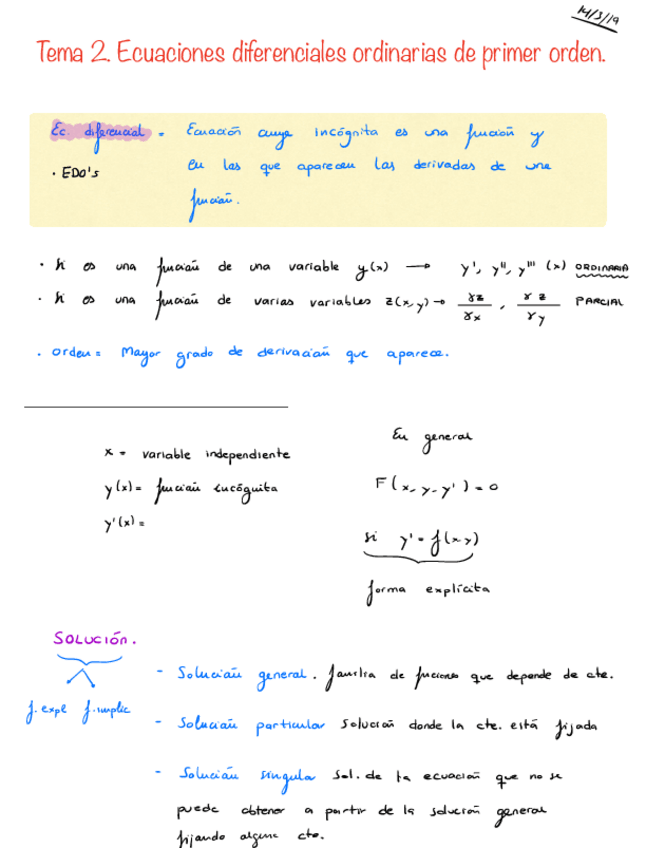 14/3/19
Tema 2. Ecuaciones diferenciales ordinarias de primer orden.
Ec. diferencial = Ecuación cuya incógnita es una función y
· EDO's en las que aparecen las derivadas de una
función.
· Si es una función de una variable y(x) → y', y'', y''' (x) ORDINARIA
· Si es una función de varias variables z(x,y) → γz/γx , γz/γy PARCIAL
· Orden = Mayor grado de derivación que aparece.
En general
x = variable independiente
y(x) = función incógnita F(x,y,y') = 0
y'(x) =
si y' = f(x,y)
forma explícita
SOLUCIÓN.
- Solución general. familia de funciones que depende de cte.
f. expl f. implic
- Solución particular solución donde la cte. está fijada
- Solución singular sol. de la ecuación que no se
puede obtener a partir de la solución general
fijando alguna cte.